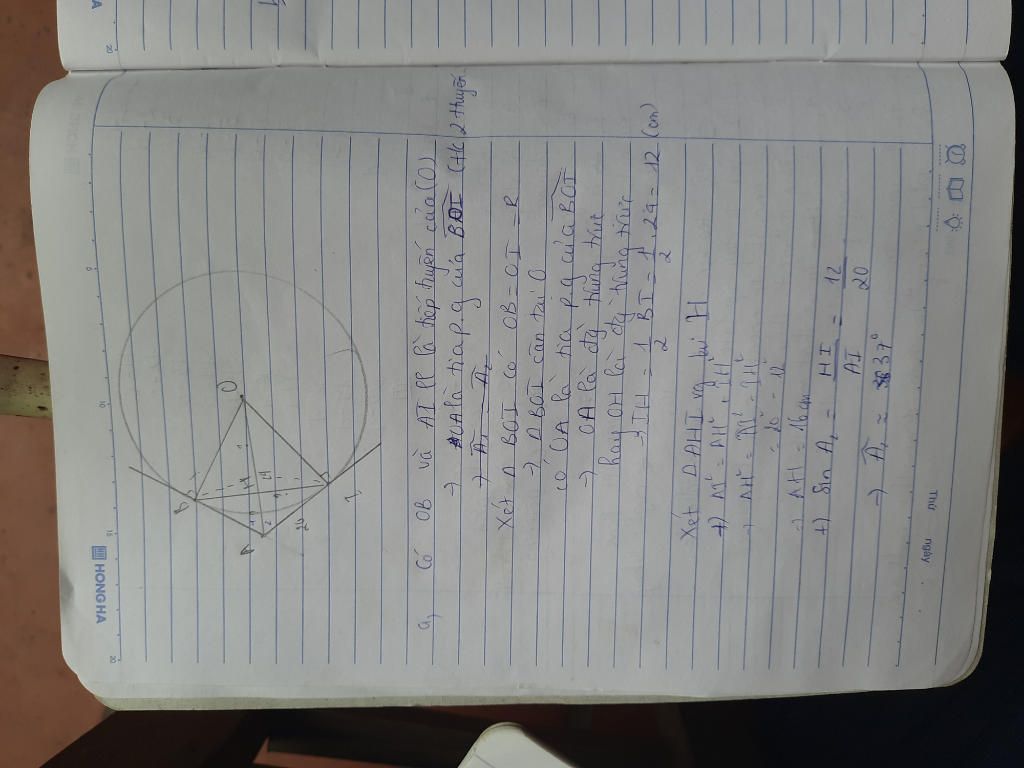 HONG HA
B
A
O
H
I
20
a, Có OB và AI là tiếp tuyến của (O)
→ OA là tia p.g của BOI (t/c 2 tiếp tuyến
→ A₁ = A₂
Xét Δ BOI có OB = OI = R
→ Δ BOI cân tại O
có OA là tia p.g của BOI
→ OA là đg trung trực
hay OH là đg trung trực
→ IH = 1/2 BI = 1/2 . 24 = 12 (cm)
Xét Δ AHI vg tại H
+) AI² = AH² + IH²
→ AH² = AI² - IH²
= 20² - 12
→ AH = 16 cm
+) Sin A₂ = HI/AI = 12/20
→ A₂ ≈ 37°
Thứ
Ngày